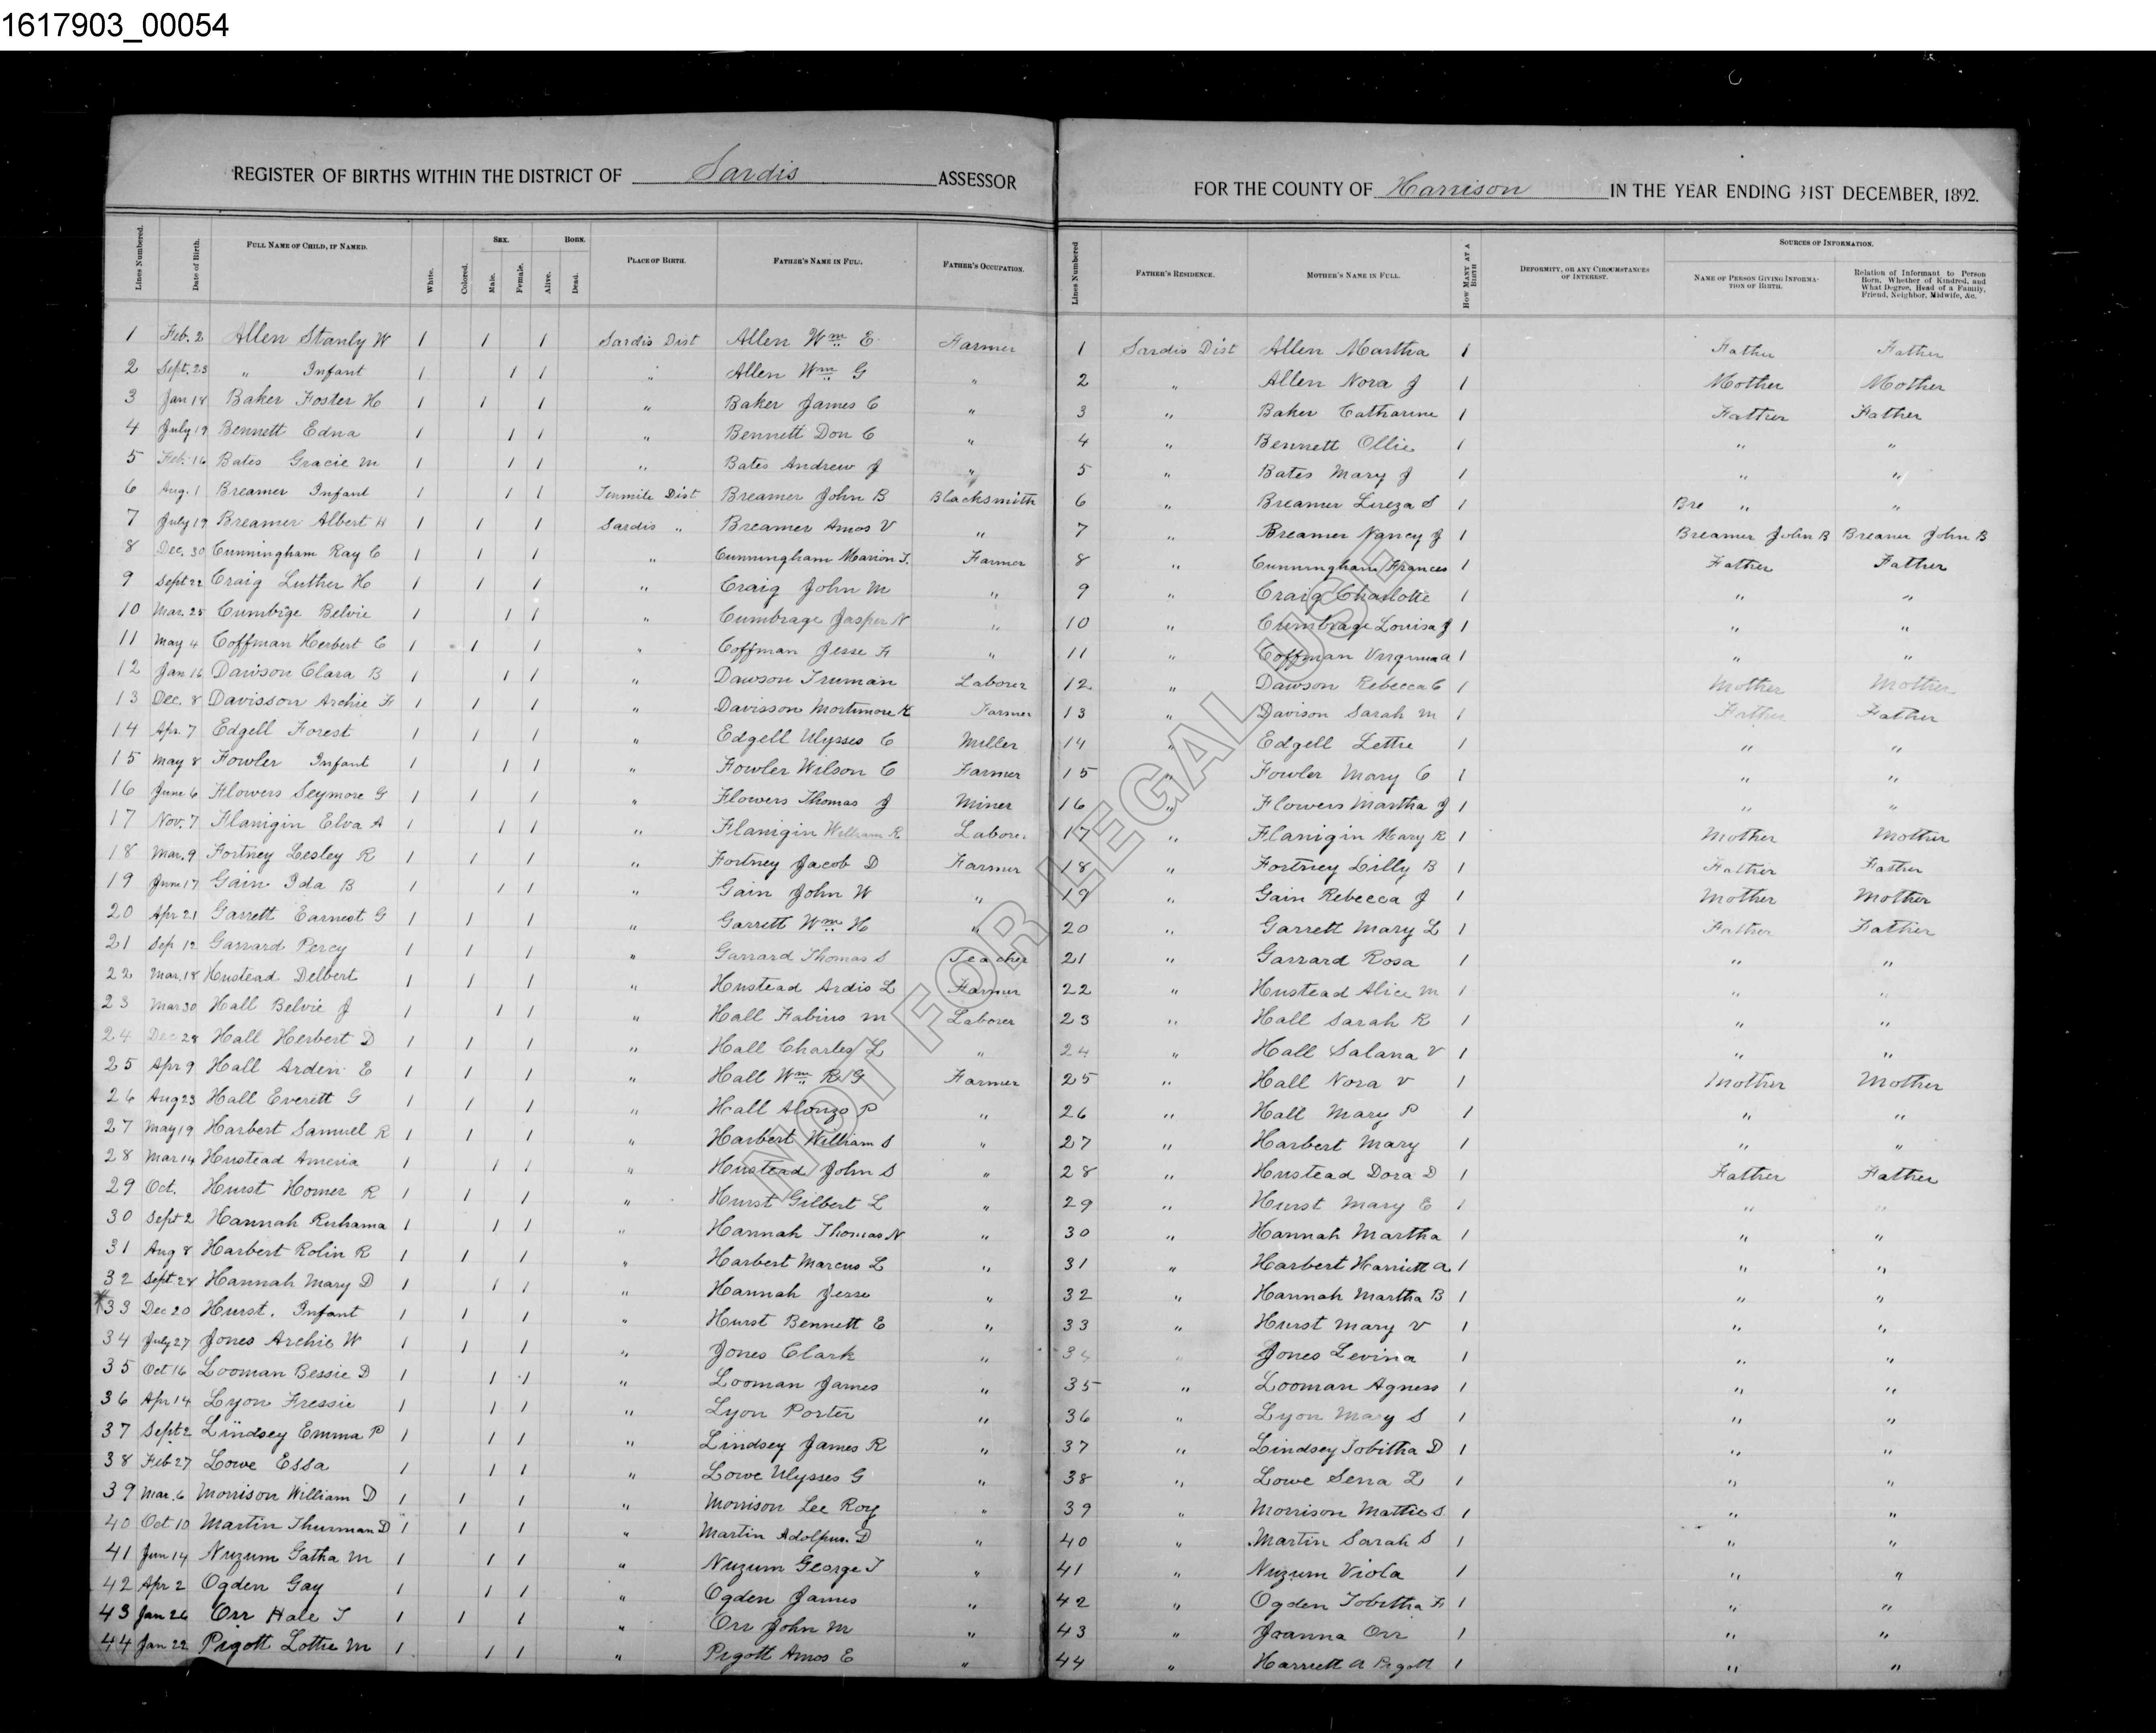 1617903_00054
REGISTER OF BIRTHS WITHIN THE DISTRICT OF Sardis ASSESSOR FOR THE COUNTY OF Harrison IN THE YEAR ENDING 31ST DECEMBER, 1892.
Lines Numbered. Date of Birth. FULL NAME OF CHILD, IF NAMED. White. Colored. SEX. Male. Female. BORN. Alive. Dead. PLACE OF BIRTH. FATHER'S NAME IN FULL. FATHER'S OCCUPATION. Lines Numbered FATHER'S RESIDENCE. MOTHER'S NAME IN FULL. HOW MANY AT A BIRTH DEFORMITY, OR ANY CIRCUMSTANCES OF INTEREST. SOURCES OF INFORMATION. NAME OF PERSON GIVING INFORMATION OF BIRTH. Relation of Informant to Person Born, Whether of Kindred, and What Degree, Head of a Family, Friend, Neighbor, Midwife, &c.
1 Feb. 2 Allen Stanly W 1 1 1 Sardis Dist Allen Wm E Farmer 1 Sardis Dist Allen Martha 1 Father Father
2 Sept. 23 " Infant 1 1 1 " Allen Wm G " 2 " Allen Nora J 1 Mother Mother
3 Jan 18 Baker Foster H 1 1 1 " Baker James C " 3 " Baker Catharine 1 Father Father
4 July 19 Bennett Edna 1 1 1 " Bennett Don C " 4 " Bennett Ollie 1 " "
5 Feb. 16 Bates Gracie M 1 1 1 " Bates Andrew J " 5 " Bates Mary J 1 " "
6 Aug. 1 Breamer Infant 1 1 1 Tenmile Dist Breamer John B Blacksmith 6 " Breamer Lureza S 1 Bre " "
7 July 19 Breamer Albert H 1 1 1 Sardis " Breamer Amos V " 7 " Breamer Nancy J 1 Breamer John B Breamer John B
8 Dec. 30 Cunningham Ray C 1 1 1 " Cunningham Marion T. Farmer 8 " Cunningham Frances 1 Father Father
9 Sept 22 Craig Luther H 1 1 1 " Craig John M " 9 " Craig Charlotte 1 " "
10 Mar. 25 Cumbige Belvie 1 1 1 " Cumbrage Jasper N " 10 " Cumbrage Louisa J 1 " "
11 May 4 Coffman Herbert C 1 1 1 " Coffman Jesse F " 11 " Coffman Virginia A 1 " "
12 Jan 16 Dawson Clara B 1 1 1 " Dawson Truman Laborer 12 " Dawson Rebecca C 1 Mother Mother
13 Dec. 8 Davisson Archie F 1 1 1 " Davisson Mortimore K Farmer 13 " Davison Sarah M 1 Father Father
14 Apr. 7 Edgell Forest 1 1 1 " Edgell Ulysses C Miller 14 " Edgell Lettie 1 " "
15 May 8 Fowler Infant 1 1 1 " Fowler Wilson C Farmer 15 " Fowler Mary C 1 " "
16 June 6 Flowers Seymore G 1 1 1 " Flowers Thomas J Miner 16 " Flowers Martha J 1 " "
17 Nov. 7 Flanigin Elva A 1 1 1 " Flanigin William R. Laborer 17 " Flanigin Mary R 1 Mother Mother
18 Mar. 9 Fortney Lesley R 1 1 1 " Fortney Jacob D Farmer 18 " Fortney Lilly B 1 Father Father
19 June 17 Gain Ida B 1 1 1 " Gain John W " 19 " Gain Rebecca J 1 Mother Mother
20 Apr 21 Garrett Earnest G 1 1 1 " Garrett Wm H " 20 " Garrett Mary L 1 Father Father
21 Sep 12 Garrard Percy 1 1 1 " Garrard Thomas S Teacher 21 " Garrard Rosa 1 " "
22 Mar. 18 Hustead Delbert 1 1 1 " Hustead Ardis L Farmer 22 " Hustead Alice M 1 " "
23 Mar 30 Hall Belvie J 1 1 1 " Hall Fabius M Laborer 23 " Hall Sarah R 1 " "
24 Dec 28 Hall Herbert D 1 1 1 " Hall Charles L " 24 " Hall Salana V 1 " "
25 Apr 9 Hall Arden E 1 1 1 " Hall Wm R G Farmer 25 " Hall Nora V 1 Mother Mother
26 Aug 23 Hall Everett G 1 1 1 " Hall Alonzo P " 26 " Hall Mary P 1 " "
27 May 19 Harbert Samuel R 1 1 1 " Harbert William S " 27 " Harbert Mary 1 " "
28 Mar 14 Hustead Ameria 1 1 1 " Hustead John S " 28 " Hustead Dora D 1 Father Father
29 Oct. Hurst Homer R 1 1 1 " Hurst Gilbert L " 29 " Hurst Mary E 1 " "
30 Sept 2 Hannah Ruhama 1 1 1 " Hannah Thomas N " 30 " Hannah Martha 1 " "
31 Aug 8 Harbert Rolin R 1 1 1 " Harbert Marcus L " 31 " Harbert Harriett A 1 " "
32 Sept. 28 Hannah Mary D 1 1 1 " Hannah Jesse " 32 " Hannah Martha B 1 " "
*33 Dec 20 Hurst. Infant 1 1 1 " Hurst Bennett E " 33 " Hurst Mary V 1 " "
34 July 27 Jones Archie W 1 1 1 " Jones Clark " 34 " Jones Levina 1 " "
35 Oct 16 Looman Bessie D 1 1 1 " Looman James " 35 " Looman Agness 1 " "
36 Apr 14 Lyon Fressie 1 1 1 " Lyon Porter " 36 " Lyon Mary S 1 " "
37 Sept 2 Lindsey Emma P 1 1 1 " Lindsey James R " 37 " Lindsey Tobitha D 1 " "
38 Feb 27 Lowe Essa 1 1 1 " Lowe Ulysses G " 38 " Lowe Sena L 1 " "
39 Mar. 6 Morrison William D 1 1 1 " Morrison Lee Roy " 39 " Morrison Mattie S 1 " "
40 Oct 10 Martin Thurman D 1 1 1 " Martin Adolpus. D " 40 " Martin Sarah S 1 " "
41 Jun 14 Nuzum Gatha M 1 1 1 " Nuzum George T " 41 " Nuzum Viola 1 " "
42 Apr 2 Ogden Gay 1 1 1 " Ogden James " 42 " Ogden Tobitha F 1 " "
43 Jan 26 Orr Hale T 1 1 1 " Orr John M " 43 " Joanna Orr 1 " "
44 Jan 22 Pigott Lottie M 1 1 1 " Pigott Amos E " 44 " Harriett A Pigott 1 " "
NOT FOR LEGAL USE